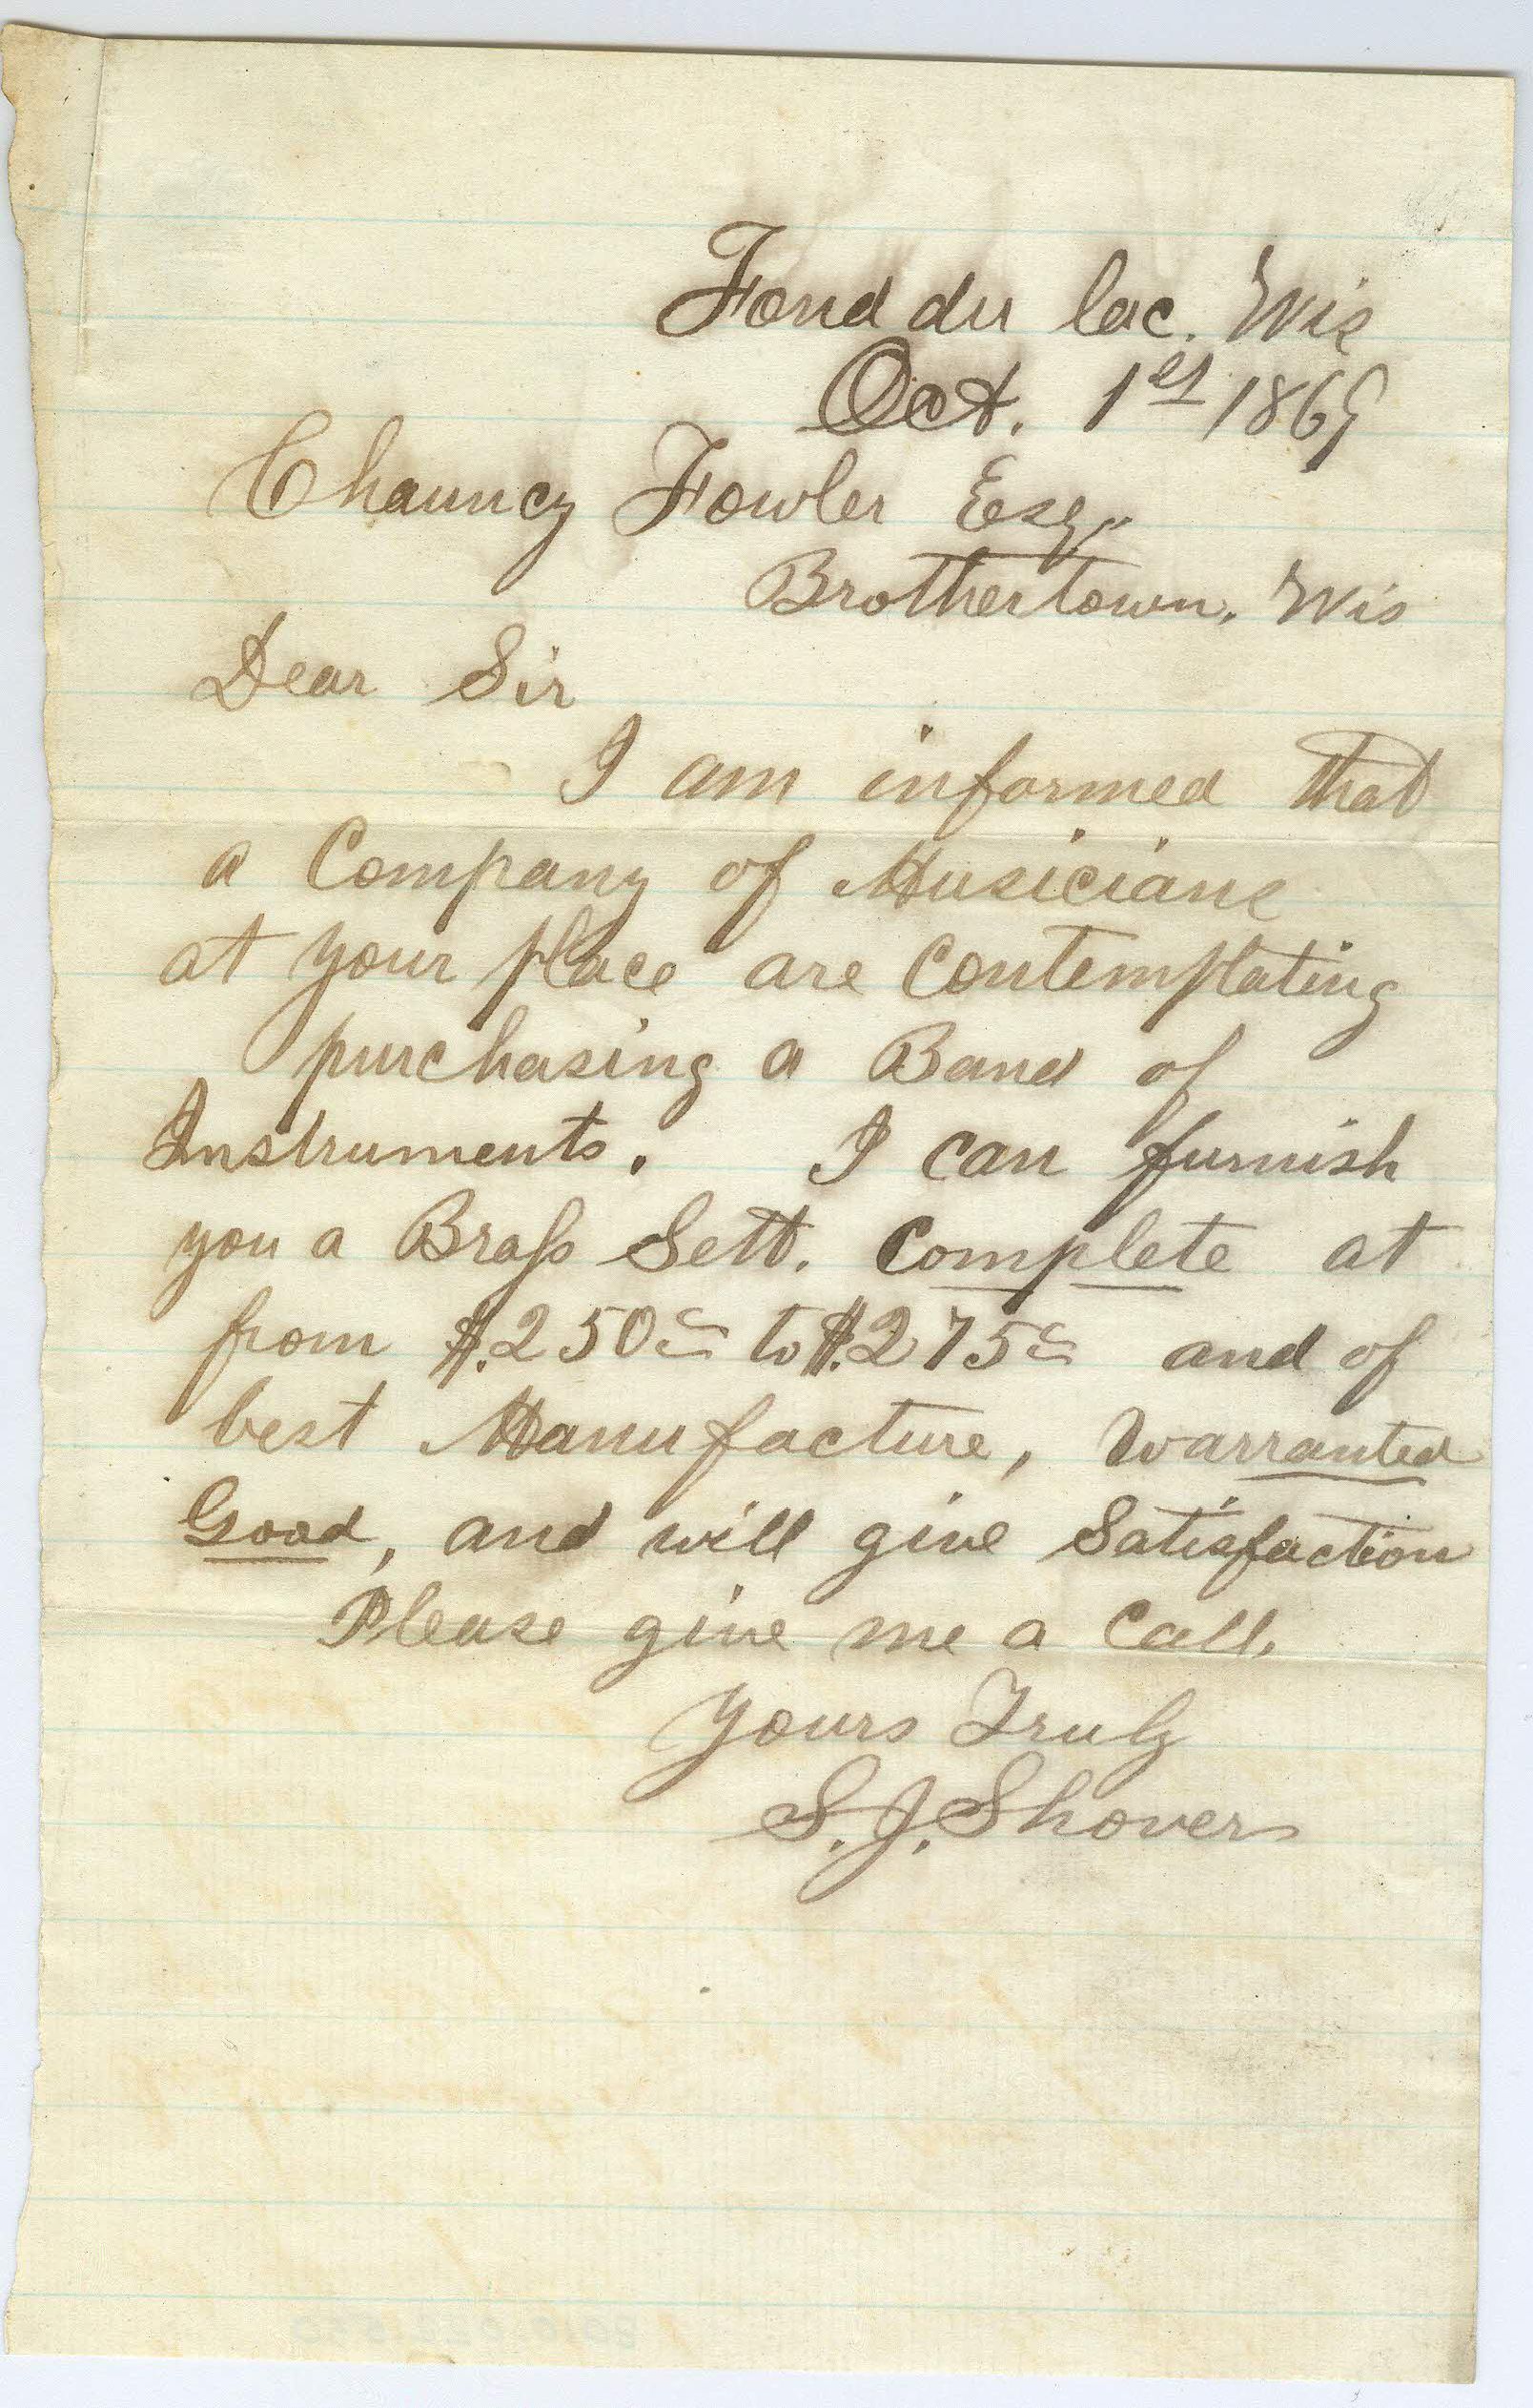 Fond du lac. Wis
Oct. 1st 1869
Chauncy Fowler Esq.
Brothertown. Wis
Dear Sir
I am informed that
a Company of Musicians
at your place are Contemplating
purchasing a Band of
Instruments. I can furnish
you a Brass Sett. Complete at
from $.250 to $.275 and of
best Manufacture, Warranted
Good, and will give Satisfaction
Please give me a Call.
Yours Truly
S. J. Shover